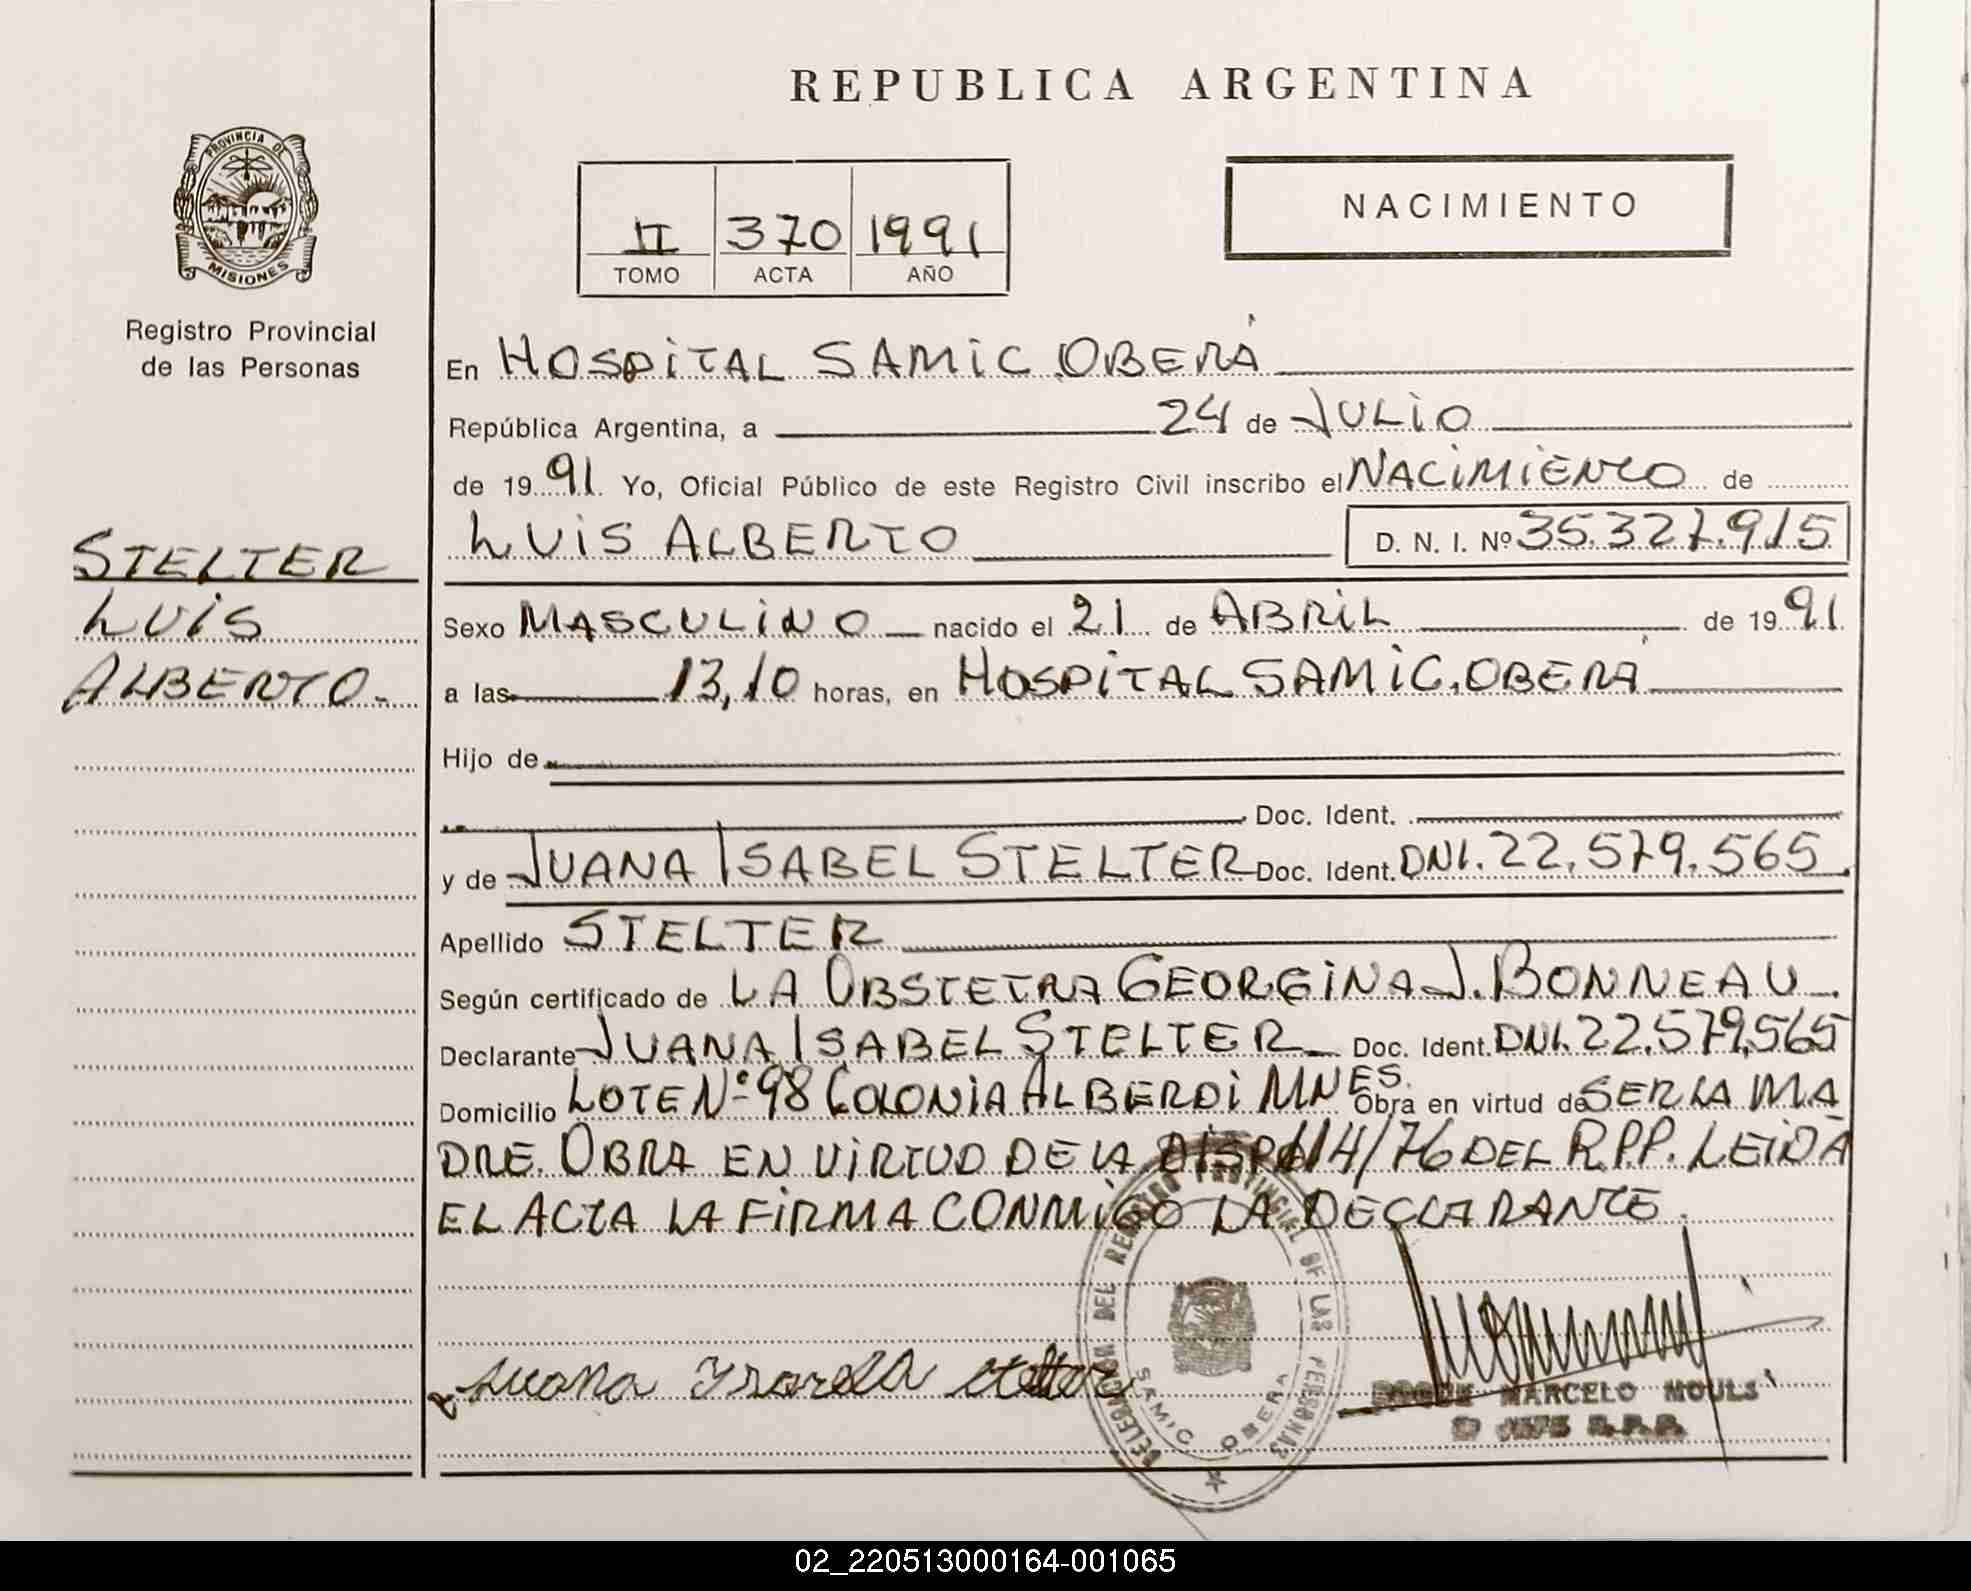 REPUBLICA ARGENTINA
PROVINCIA DE
MISIONES
Registro Provincial
de las Personas
II 370 1991
TOMO ACTA AÑO
NACIMIENTO
STELTER
LUIS
ALBERTO.-
En HOSPITAL SAMIC OBERÁ
República Argentina, a 24 de JULIO
de 1991. Yo, Oficial Público de este Registro Civil inscribo el NACIMIENTO de
LUIS ALBERTO D. N. I. Nº 35.327.915
Sexo MASCULINO nacido el 21 de ABRIL de 1991
a las 13,10 horas, en HOSPITAL SAMIC.OBERÁ
Hijo de
Doc. Ident.
y de JUANA ISABEL STELTER Doc. Ident. DNI. 22.579.565
Apellido STELTER
Según certificado de LA OBSTETRA GEORGINA J. BONNEAU
Declarante JUANA ISABEL STELTER Doc. Ident. DNI. 22.579.565
Domicilio LOTE Nº 98 COLONIA ALBERDI MNES. Obra en virtud de SER LA MA
DRE. OBRA EN VIRTUD DE LA DISP. 114/76 DEL R.P.P. LEIDA
EL ACTA LA FIRMA CONMIGO LA DECLARANTE.
DELEGACION DEL REGISTRO PROVINCIAL DE LAS PERSONAS
SAMIC OBERA
Juana Stelter
MARCELO MOULS
R.P.P.
02_220513000164-001065